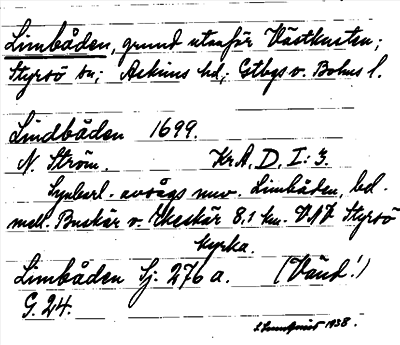 Limbåden, grund utanför Västkusten;
Styrsö sn; Askims hd; Gtbgs o. Bohus l.
Lindbåden 1699.
N. Ström. KrA, D, I: 3.
Synbarl. avsågs nuv. Limbåden, bd.
mell. Buskär o. 8,1 km. VNV Styrsö
kyrka.
Limbåden Sj. 276 a. (Vänd!)
G. 24.
1938.